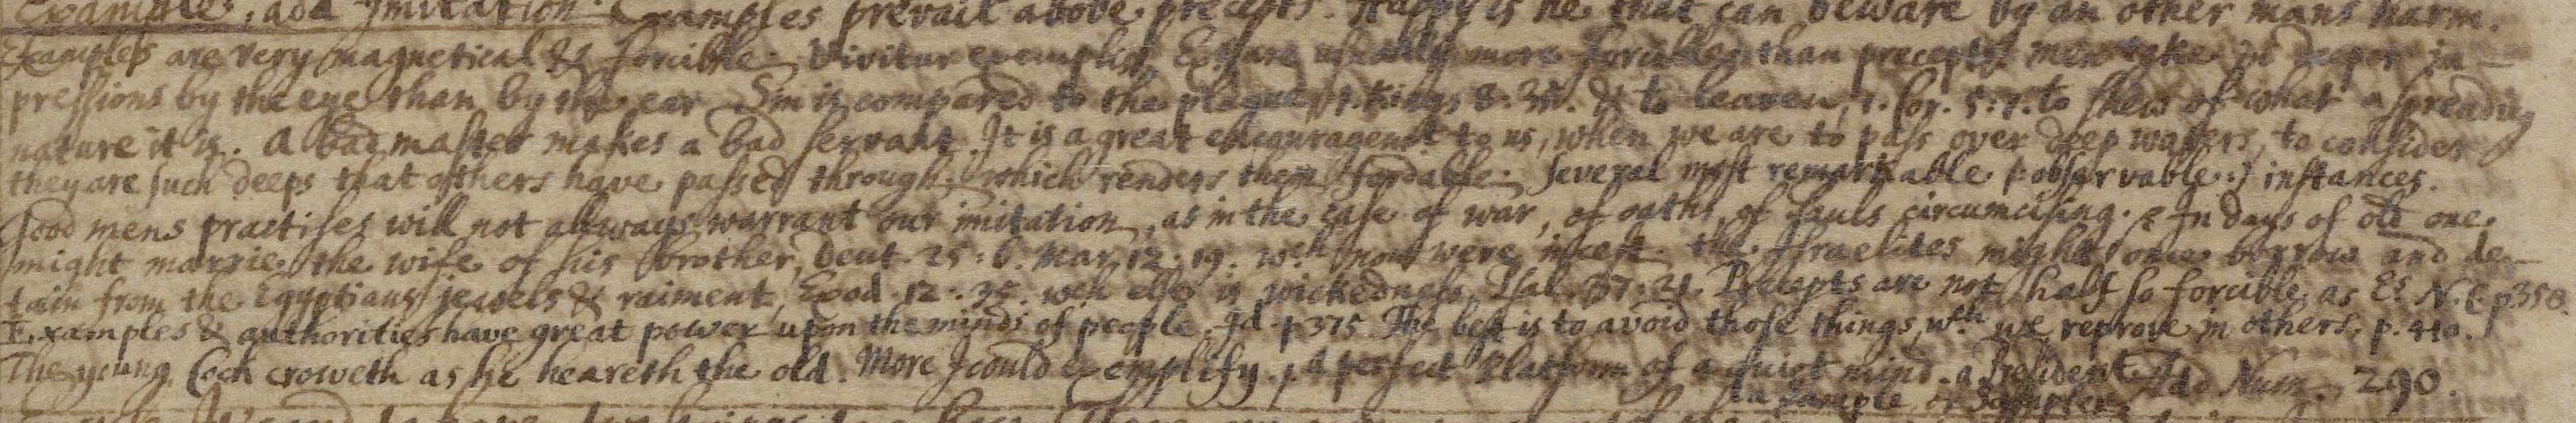 Examples, add Imitation. Examples prevail above precepts. Happy is he that can beware by an other mans harm.
Examples are very magnetical & forcible. Vivitur exemplis. Ex. are usually more forcible than precepts men take in deeper im-
pressions by the eye than by the ear. Sin is compared to the plague, 1. Kings 8. & to leaven, 1. Cor. 5. 7. to shew of what a spreading
nature it is. A bad master makes a bad servant. It is a great encouragement to us, when we are to pass over deep waters, to consider
they are such deeps that others have passed through, which renders them fordable. Several most remarkable (:observable:) instances.
Good mens practises will not allways warrant our imitation, as in the case of war, of oaths, of Pauls circumcising. In days of old one
might marrie the wife of his brother, Deut. 25: 6. Mar. 12. 19. wch now were incest. the Israelites might once borrow and de-
tain from the Egyptians jewels & raiment, Exod. 12. 35. wch else is wickedness, Psal. 37. 21. Precepts are not half so forcible as Es. N. C. p 358.
Examples & authorities have great power upon the minds of people. Id. p 375. The best is to avoid those things, wch we reprove in others. p. 440.
The young Cock croweth as he heareth the old. More I could exemplify. A perfect Platform of a quiet mind. a President. Add Num. 290.
a sample, or sampler.